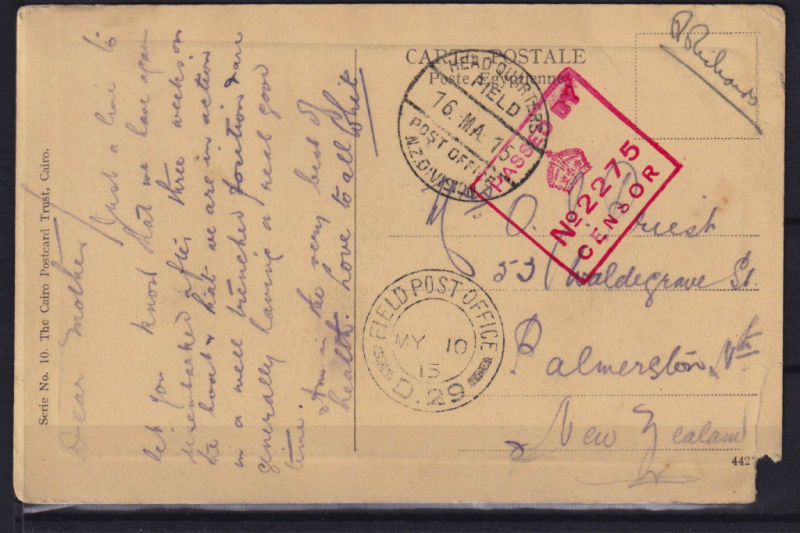 Serie No. 10. The Cairo Postcard Trust, Cairo.
Dear Mother, Just a line to
let you know that we have again
disembarked after three weeks on
the boat & that we are in action
in a well trenched position & are
generally having a real good
time.
Am in the very best of
health. Love to all
CARTE POSTALE
Poste Egyptienne
HEADQUARTERS
FIELD
16. MA. 15
POST OFFICE
N.Z. DIVISION
PASSED BY
No 2275
CENSOR
O. Priest
53 Waldegrave St.
Palmerston Nth
New Zealand
FIELD POST OFFICE
MY 10
15
D.29
442